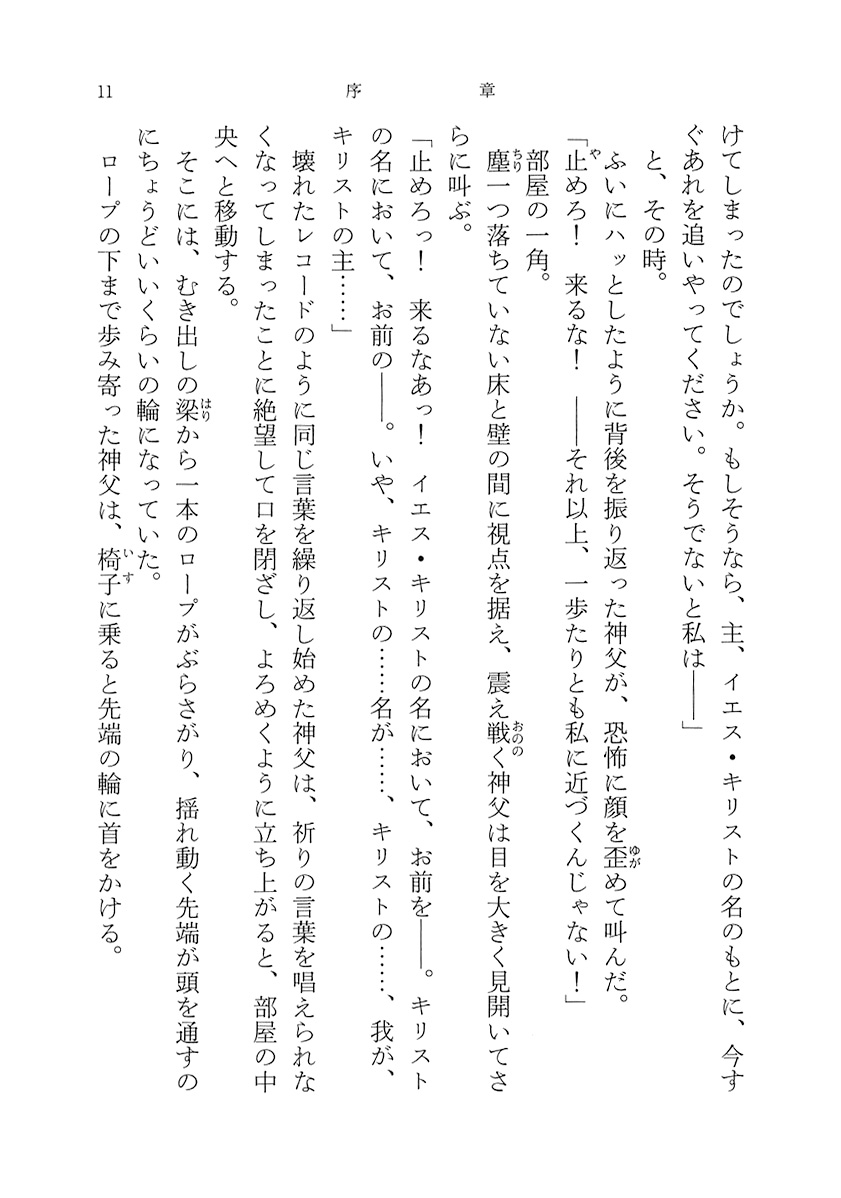 11
序章
けてしまったのでしょうか。もしそうなら、主、イエス・キリストの名のもとに、今す
ぐあれを追いやってください。そうでないと私は――」
と、その時。
ふいにハッとしたように背後を振り返った神父が、恐怖に顔を歪めて叫んだ。
「止めろ！　来るな！　――それ以上、一歩たりとも私に近づくんじゃない！」
部屋の一角。
塵一つ落ちていない床と壁の間に視点を据え、震え戦く神父は目を大きく見開いてさ
らに叫ぶ。
「止めろっ！　来るなあっ！　イエス・キリストの名において、お前を――。キリスト
の名において、お前の――。いや、キリストの……名が……、キリストの……、我が、
キリストの主……」
壊れたレコードのように同じ言葉を繰り返し始めた神父は、祈りの言葉を唱えられな
くなってしまったことに絶望して口を閉ざし、よろめくように立ち上がると、部屋の中
央へと移動する。
そこには、むき出しの梁から一本のロープがぶらさがり、揺れ動く先端が頭を通すの
にちょうどいいくらいの輪になっていた。
ロープの下まで歩み寄った神父は、椅子に乗ると先端の輪に首をかける。
ゆが
や
ちり
おのの
はり
いす